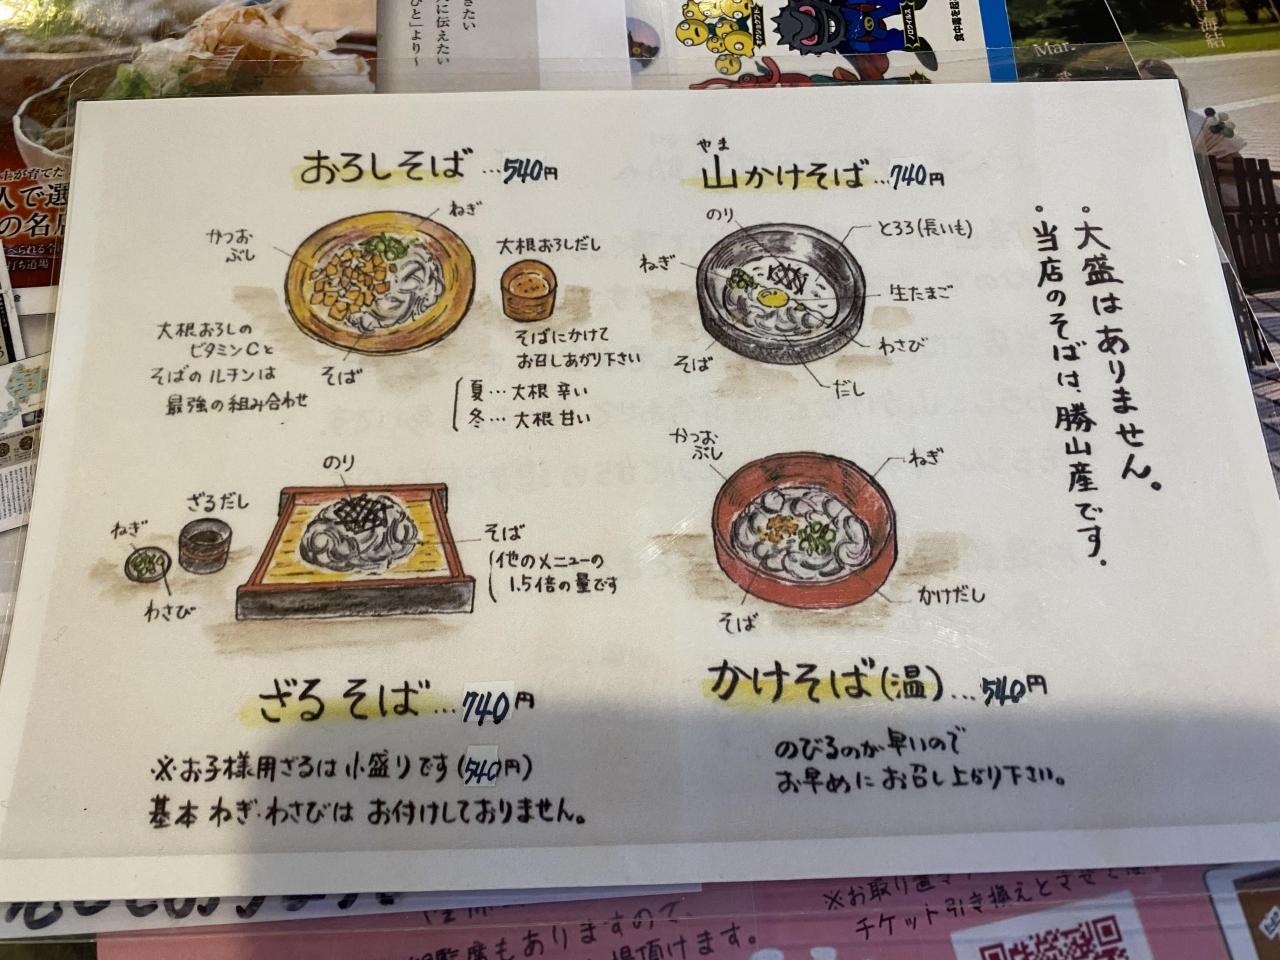 おろしそば…540円
ねぎ
かつおぶし
大根おろしだし
大根おろしの
ビタミンCと
そばのルチンは
最強の組み合わせ
そば
そばにかけて
お召しあがり下さい
夏…大根 辛い
冬…大根 甘い
やま
山かけそば…740円
のり
とろろ(長いも)
ねぎ
生たまご
わさび
そば
だし
・大盛はありません。
・当店のそばは、勝山産です.
のり
ざるだし
ねぎ
わさび
そば
他のメニューの
1.5倍の量です
ざるそば…740円
※お子様用ざるは小盛りです(540円)
基本 ねぎ・わさびは お付けしておりません。
かつおぶし
ねぎ
そば
かけだし
かけそば(温)…540円
のびるのが早いので
お早めにお召し上がり下さい。
きたい
に伝えたい
ひと」より〜
ノロウイルス
Mar.
士が育てた
人で選
の名店
打ち道場
席もありますので、
頂けます。
※お取り置き
チケット引き換えとさせて